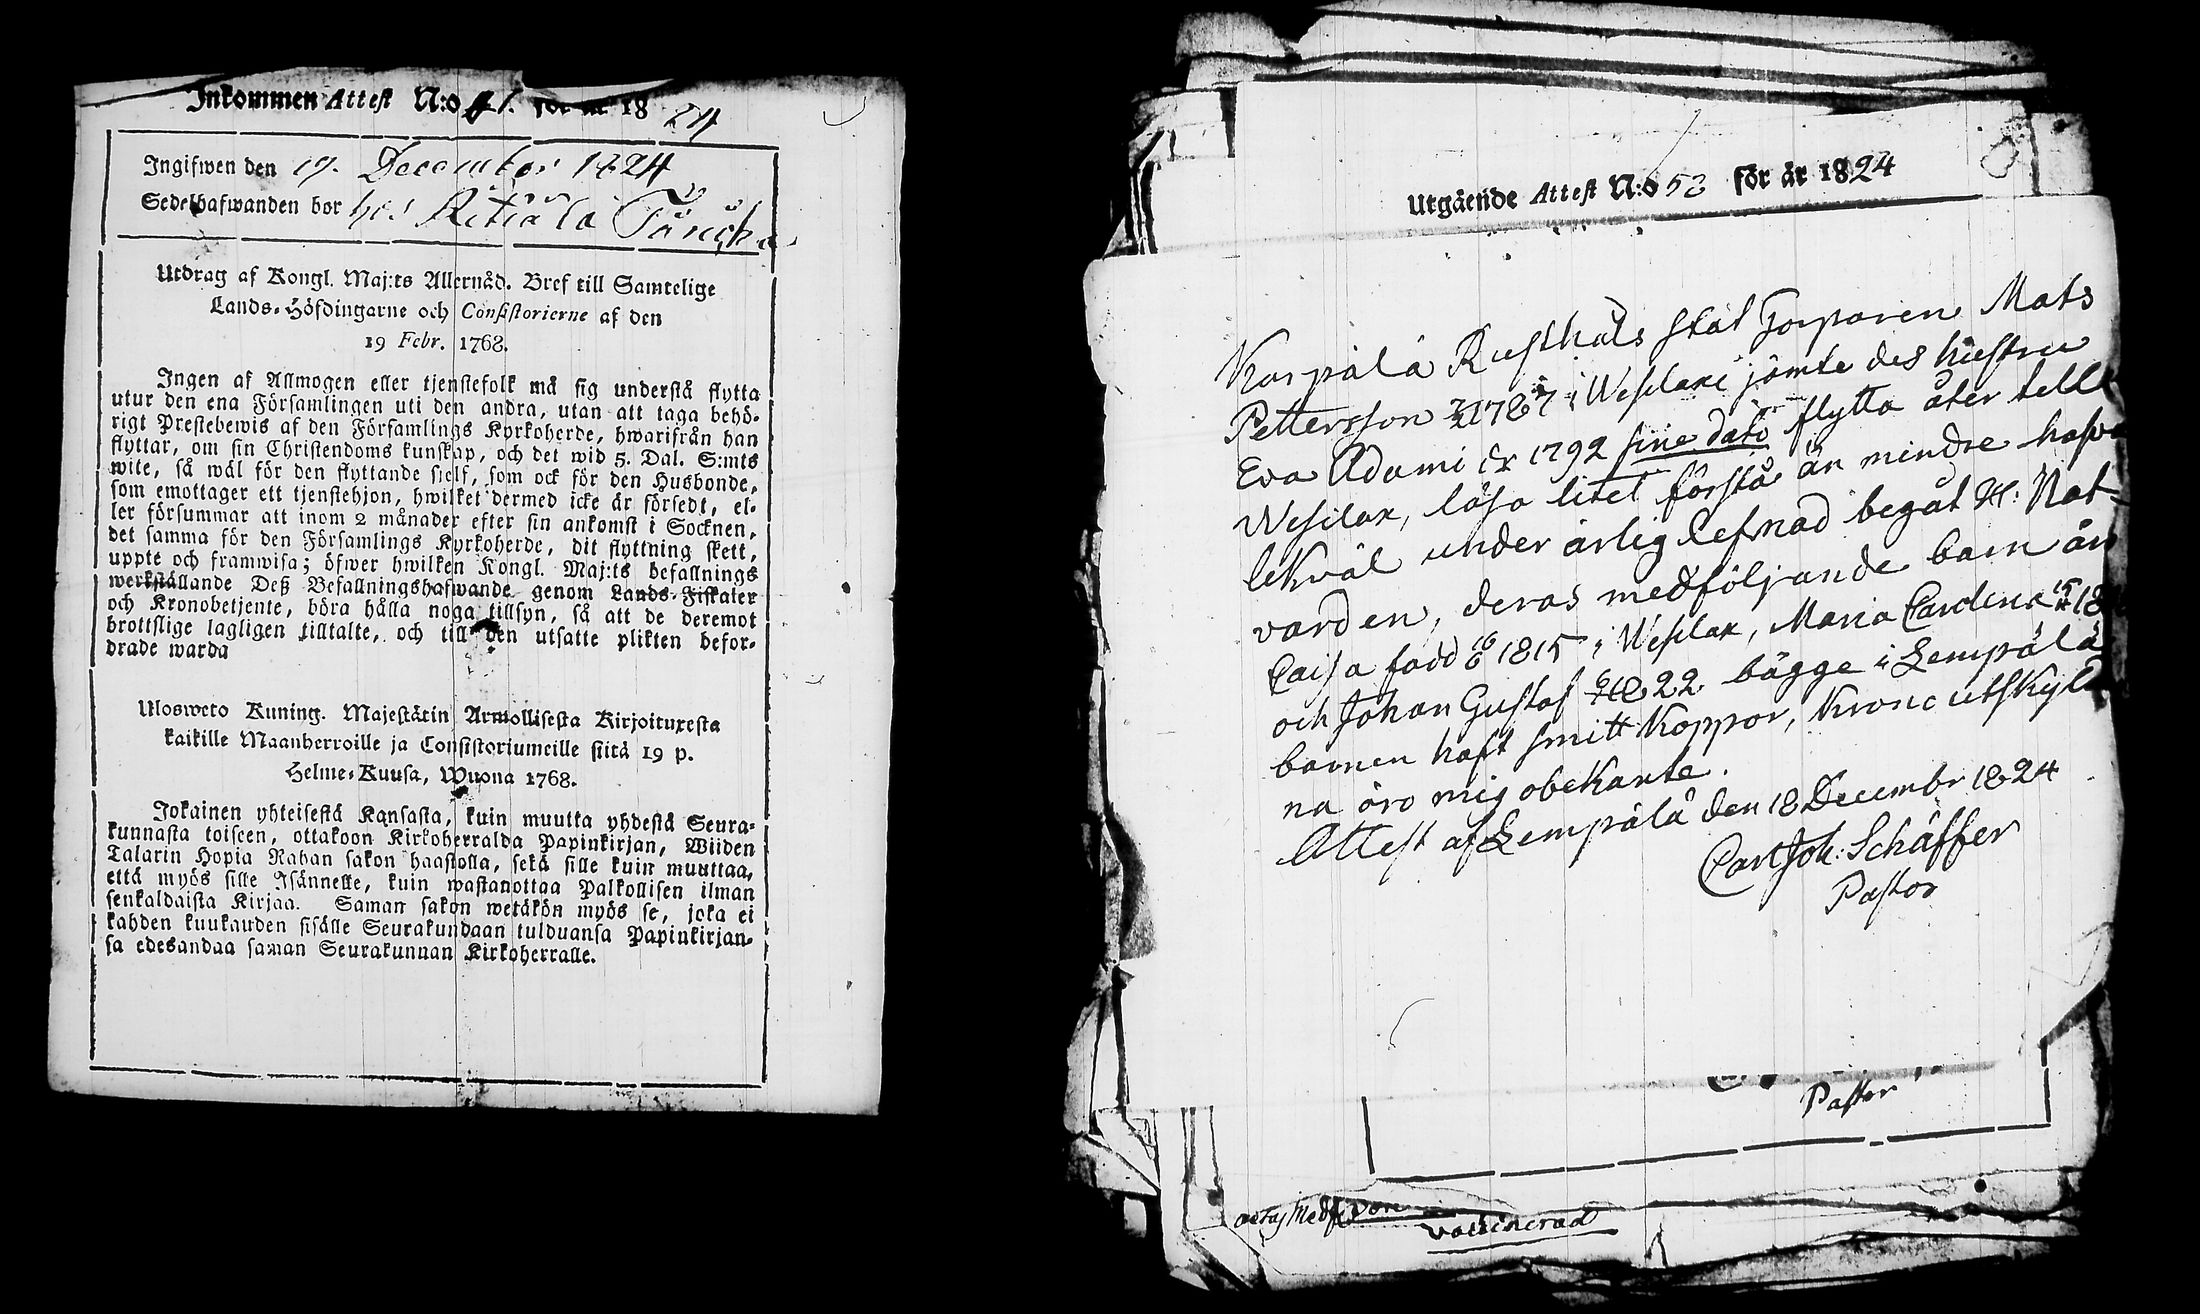 Inkommen Attest N:o 41. för år 1824
Ingifwen den 19. December 1824
Sedelhafwanden bor hos
Utdrag af Kongl. Maj:ts Allernåd. Bref till Samtelige
Lands-Höfdingarne och Consistorierne af den
19 Febr. 1768.
Ingen af Allmogen eller tjenstefolk må sig understå flytta
utur den ena Församlingen uti den andra, utan att taga behö-
rigt Prestebewis af den Församlings Kyrkoherde, hwarifrån han
flyttar, om sin Christendoms kunskap, och det wid 5. Dal. S:mts
wite, så wäl för den flyttande sielf, som ock för den Husbonde,
som emottager ett tjenstehjon, hwilket dermed icke är försedt, el-
ler försummar att inom 2 månader efter sin ankomst i Socknen,
det samma för den Församlings Kyrkoherde, dit flyttning skett,
uppte och framwisa; öfwer hwilken Kongl. Maj:ts befallnings
werkställande Deß Befallningshafwande genom Lands-Fiskaler
och Kronobetjente, böra hålla noga tillsyn, så att de deremot
brottslige lagligen tilltalte, och till den utsatte plikten befor-
drade warda
Ulosweto Kuning. Majestätin Armollisesta Kirjoituxesta
kaikille Maanherroille ja Consistoriumeille siitä 19 p.
Helme-Kuusa, Wuona 1768.
Jokainen yhteisestä Kansasta, kuin muutta yhdestä Seura-
kunnasta toiseen, ottakoon Kirkoherralda Papinkirjan, Wiiden
Talarin Hopia Rahan sakon haastolla, sekä sille kuin muuttaa,
että myös sille Isännelle, kuin wastanottaa Palkollisen ilman
senkaldaista Kirjaa. Saman sakon wetäkön myös se, joka ei
kahden kuukauden sisälle Seurakundaan tulduansa Papinkirjan-
sa edesandaa saman Seurakunnan Kirkoherralle.
Utgående Attest N:o 53 för år 1824
Korpåla Rusthåls stat Torparen Mats
Pettersson 1787 i Wesilax jämte des hustru
Eva Adami Dr 1792 sine dato flytta åter till
Wesilax, läsa litet förstå än mindre hafva
likväl under ärlig lefnad begåt H: Nat-
varden, deras medföljande barn är
Caisa född 1815 i Wesilax, Maria Carolina 18
och Johan Gustaf 22 bägge i Lempälä
barnen haft smitt Koppor, Krono utskyld
na äro mig obekante.
Attest af Lempälä den 18 Decembr 1824
Carl Joh: Schäffer
Pastor
Pastor
vaccinerad